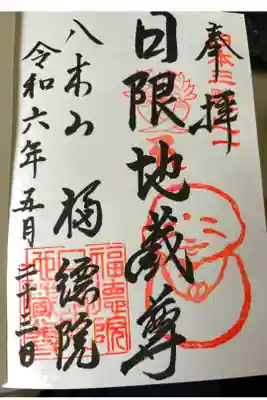 奉拝
日限地蔵尊
八木山 福徳院
令和六年五月二十二日
福徳院